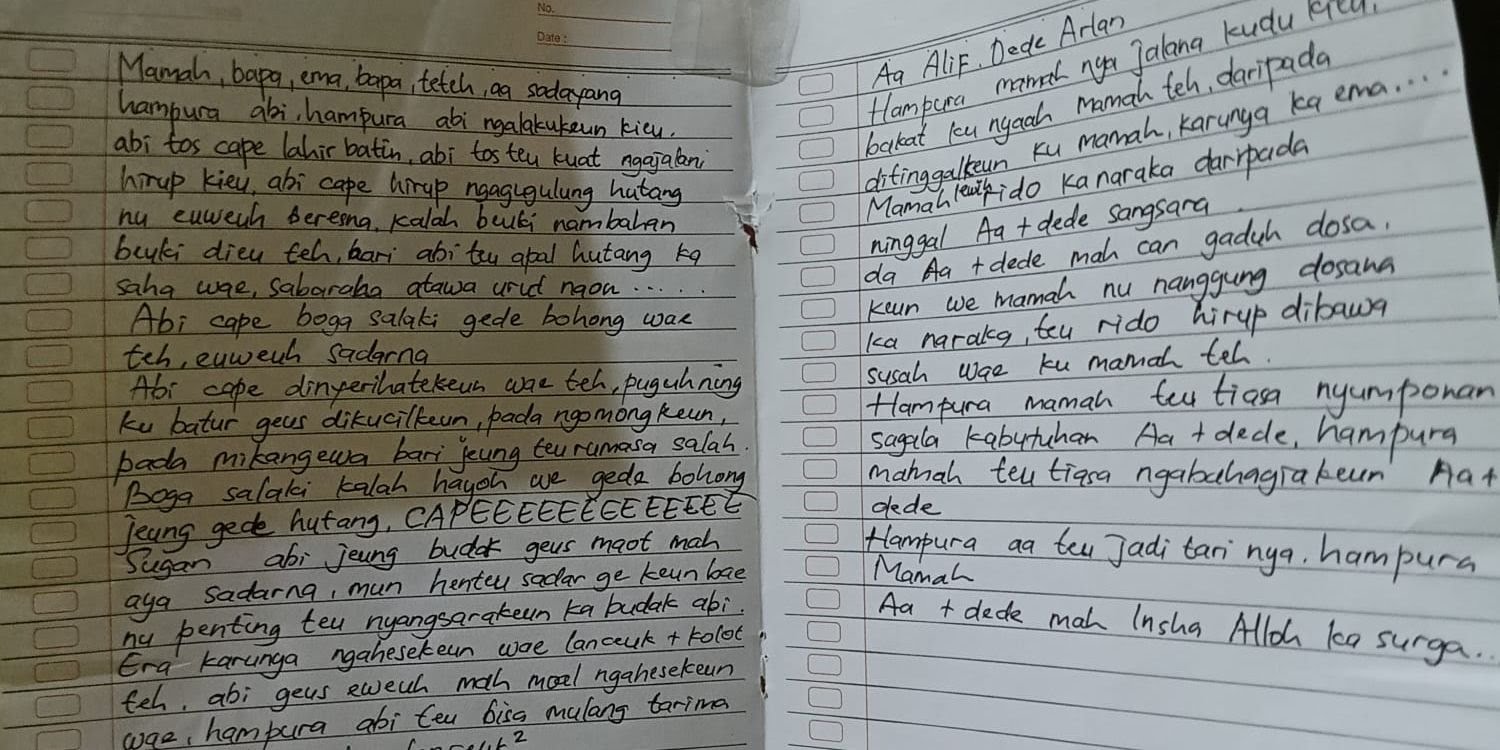 No.
Date :
Mamah, bapa, ema, bapa, teteh, aa sadayana
hampura abi, hampura abi ngalakukeun kieu.
abi tos cape lahir batin, abi tos teu kuat ngajalani
hirup kieu, abi cape hirup ngagugulung hutang
nu euweuh beresna, kalah beuki nambahan
beuki dieu teh, bari abi teu apal hutang ka
saha wae, sabaraha atawa urut naon ......
Abi cape boga salaki gede bohong wae
teh, euweuh sadarna
Abi cape dinyerihatekeun wae teh, puguh ning
ku batur geus dikucilkeun, pada ngomongkeun,
pada mikangewa bari jeung teu rumasa salah.
Boga salaki kalah hayoh we gede bohong
jeung gede hutang, CAPEEEEEEEEEEEEEE
Sugan abi jeung budak geus maot mah
aya sadarna, mun henteu sadar ge keun bae
nu penting teu nyangsarakeun ka budak abi.
Era karunya ngahesekeun wae lanceuk + kolot
teh, abi geus eweuh mah moal ngahesekeun
wae, hampura abi teu bisa mulang tarima
Aa Alif, Dede Arlan
Hampura mamah nya jalana kudu kieu.
bakat ku nyaah mamah teh, daripada
ditinggalkeun ku mamah, karunya ka ema....
Mamah lewih rido ka naraka daripada
ninggal Aa + dede sangsara.
da Aa + dede mah can gaduh dosa.
keun we mamah nu nanggung dosana
ka naraka, teu rido hirup dibawa
susah wae ku mamah teh.
Hampura mamah teu tiasa nyumponan
sagala kabutuhan Aa + dede, hampura
mamah teu tiasa ngabahagiakeun Aa +
dede
Hampura aa teu jadi tari nya. hampura
Mamah
Aa + dede mah Insha Alloh ka surga..